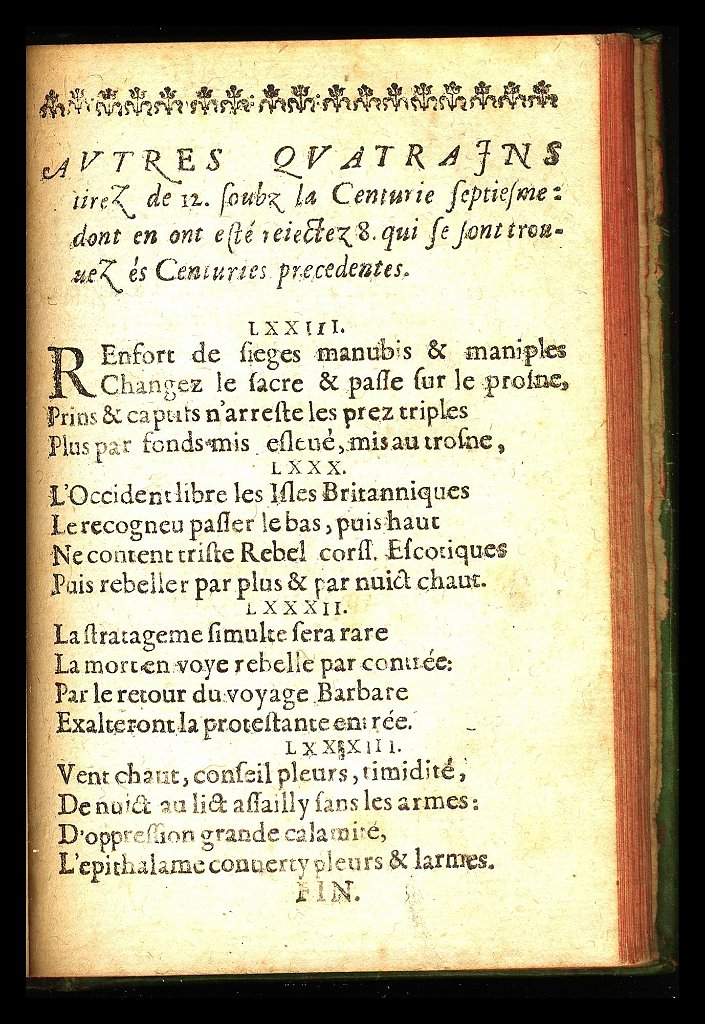 AVTRES QVATRAINS
tirez de 12. ſoubz la Centurie ſeptieſme:
dont en ont eſté reiectez 8. qui ſe ſont trou-
uez és Centuries precedentes.
LXXIII.
REnfort de ſieges manubis & maniples
Changez le ſacre & paſſe ſur le proſne,
Prins & captifs n'arreſte les prez triples
Plus par fonds mis eſleué, mis au troſne,
LXXX.
L'Occident libre les Iſles Britanniques
Le recogneu paſſer le bas, puis haut
Ne content triſte Rebel corſſ. Eſcotiques
Puis rebeller par plus & par nuict chaut.
LXXXII.
La ſtratageme ſimulte ſera rare
La mort en voye rebelle par contrée:
Par le retour du voyage Barbare
Exalteront la proteſtante entrée.
LXXXIII.
Vent chaut, conſeil pleurs, timidité,
De nuict au lict aſſailly ſans les armes:
D'oppreſſion grande calamité,
L'epithalame conuerty pleurs & larmes.
FIN.